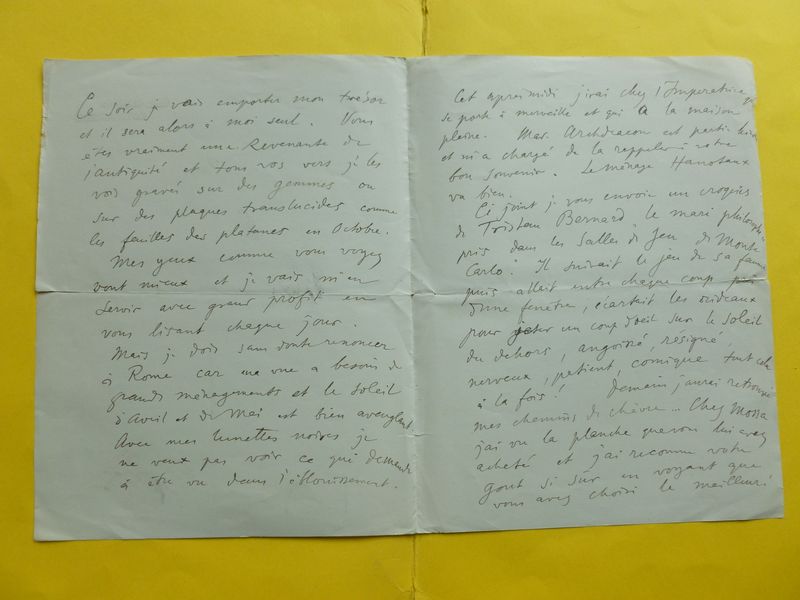 Ce soir je vais emporter mon trésor
et il sera alors à moi seul. Vous
êtes vraiment une Revenante de
l'antiquité et tous vos vers je les
vois gravés sur des gemmes ou
sur des plaques translucides comme
les feuilles des platanes en Octobre.
Mes yeux comme vous voyez
vont mieux et je vais m'en
servir avec grand profit en
vous lisant chaque jour.
Mais je dois sans doute renoncer
à Rome car ma vue a besoin de
grands ménagements et le soleil
d'Avril et de Mai est bien aveuglant
Avec mes lunettes noires je
ne veux pas voir ce qui demande
à être vu dans l'éblouissement.
Cet après midi j'irai chez l'Impératrice qui
se porte à merveille et qui a la maison
pleine. Mad. Archdeacon est partie hier
et m'a chargé de la rappeler à votre
bon souvenir. Le ménage Hanotaux
va bien.
Ci joint je vous envoie un croquis
de Tristan Bernard "le mari philosophe"
pris dans les salles de Jeu de Monte
Carlo. Il suivait le jeu de sa femme
puis allait entre chaque coup
d'une fenêtre, écartait les rideaux
pour jeter un coup d'oeil sur le soleil
du dehors, angoissé, résigné,
nerveux, patient, comique tout cela
à la fois! Demain j'aurai retrouvé
mes chemins de chèvre... Chez Mossa
j'ai vu la planche que vous lui avez
acheté et j'ai reconnu votre
gout si sûr en voyant que
vous avez choisi le meilleur!